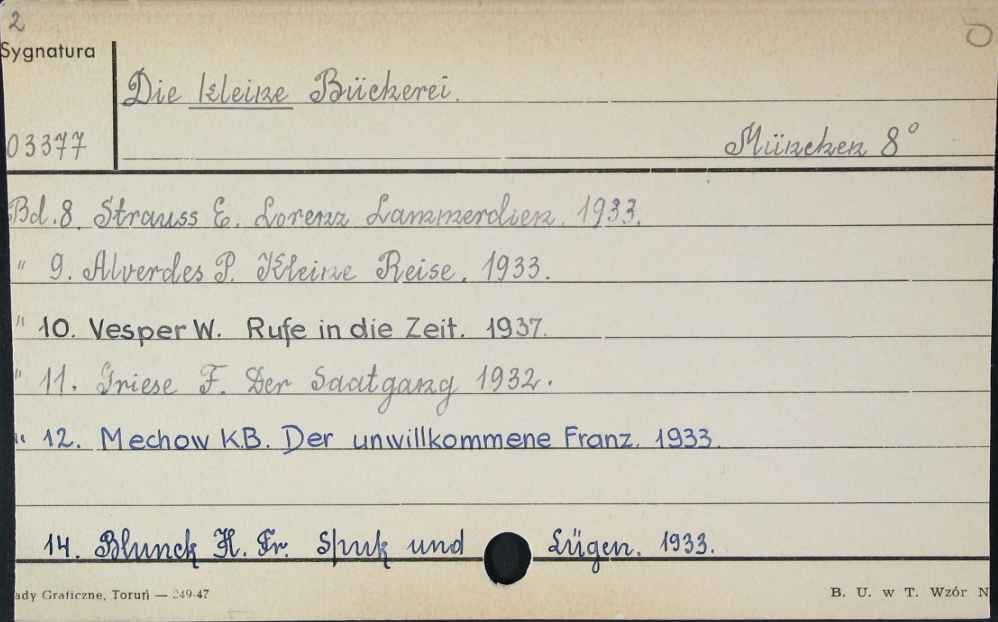 2
Sygnatura
Die kleine Bücherei.
03377
München 8°
Bd. 8. Strauss E. Lorenz Lammerdien. 1933.
" 9. Alverdes P. Kleine Reise. 1933.
" 10. Vesper W. Rufe in die Zeit. 1937.
" 11. Griese F. Der Saatgang 1932.
" 12. Mechow K.B. Der unwillkommene Franz. 1933.
14. Blunck H. Fr. Spuk und Lügen. 1933.
ady Graficzne, Toruń — 249-47
B. U. w T. Wzór N